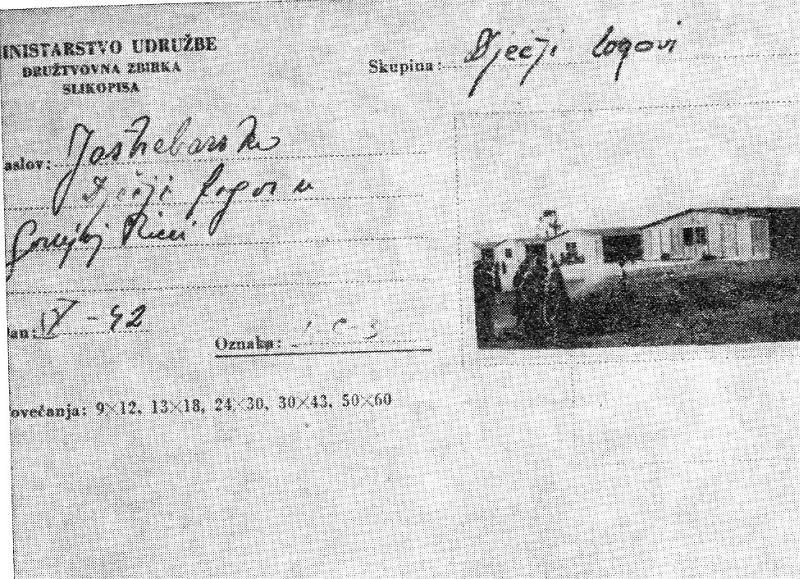 INISTARSTVO UDRUŽBE
DRUŽTVOVNA ZBIRKA
SLIKOPISA
Skupina: Dječji logovi
aslov: Jastrebarsko
Dječji logor u
Gornjoj Rieci
an: IX - 42
Oznaka:
ovećanja: 9×12, 13×18, 24×30, 30×43, 50×60